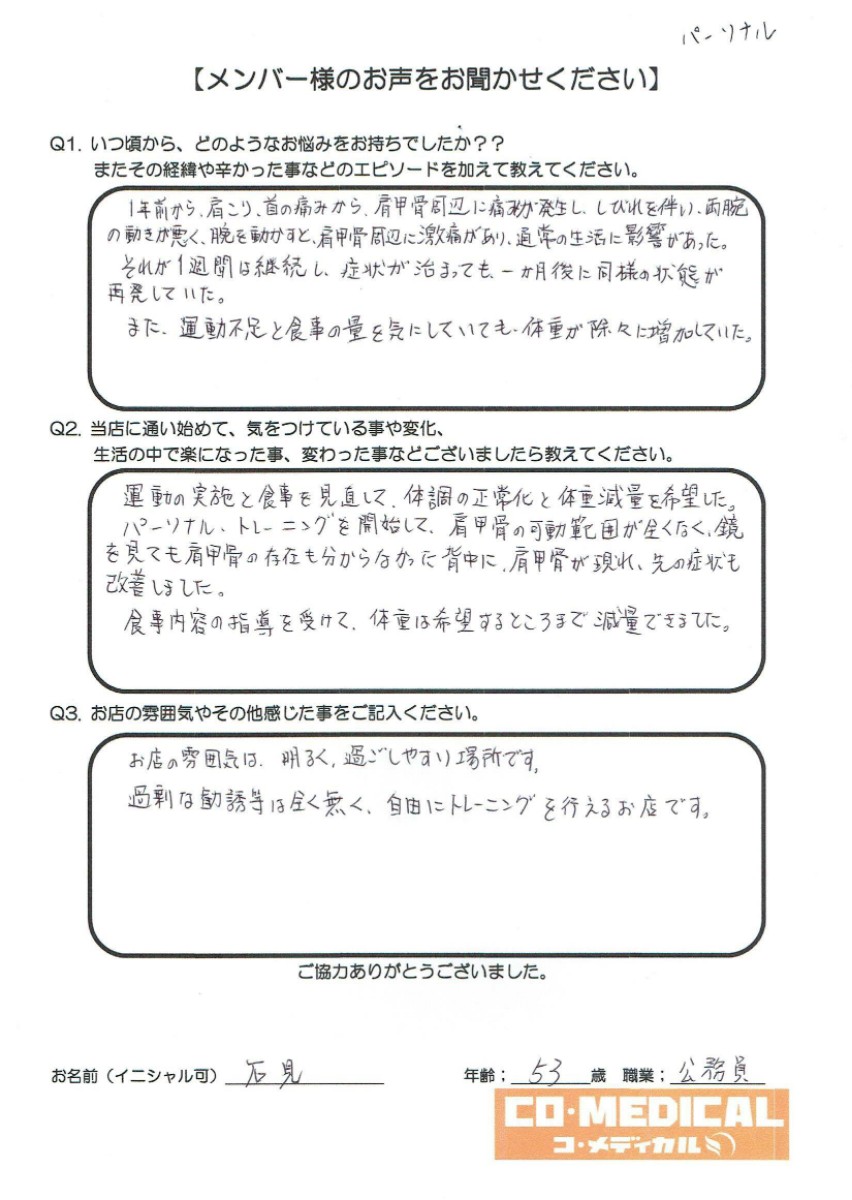 パーソナル
【メンバー様のお声をお聞かせください】
Q1. いつ頃から、どのようなお悩みをお持ちでしたか？？
またその経緯や辛かった事などのエピソードを加えて教えてください。
1年前から、肩こり、首の痛みから、肩甲骨周辺に痛みが発生し、しびれを伴い、両腕
の動きが悪く、腕を動かすと、肩甲骨周辺に激痛があり、通常の生活に影響があった。
それが1週間は継続し、症状が治まっても、一か月後に同様の状態が
再発していた。
また、運動不足と食事の量を気にしていても、体重が除々に増加していた。
Q2. 当店に通い始めて、気をつけている事や変化、
生活の中で楽になった事、変わった事などございましたら教えてください。
運動の実施と食事を見直して、体調の正常化と体重減量を希望した。
パーソナル、トレーニングを開始して、肩甲骨の可動範囲が全くなく、鏡
を見ても肩甲骨の存在も分からなかった背中に、肩甲骨が現れ、先の症状も
改善しました。
食事内容の指導を受けて、体重は希望するところまで減量できました。
Q3. お店の雰囲気やその他感じた事をご記入ください。
お店の雰囲気は、明るく、過ごしやすい場所です。
過剰な勧誘等は全く無く、自由にトレーニングを行えるお店です。
ご協力ありがとうございました。
お名前（イニシャル可） 石見 年齢； 53 歳 職業； 公務員
CO・MEDICAL
コ・メディカル